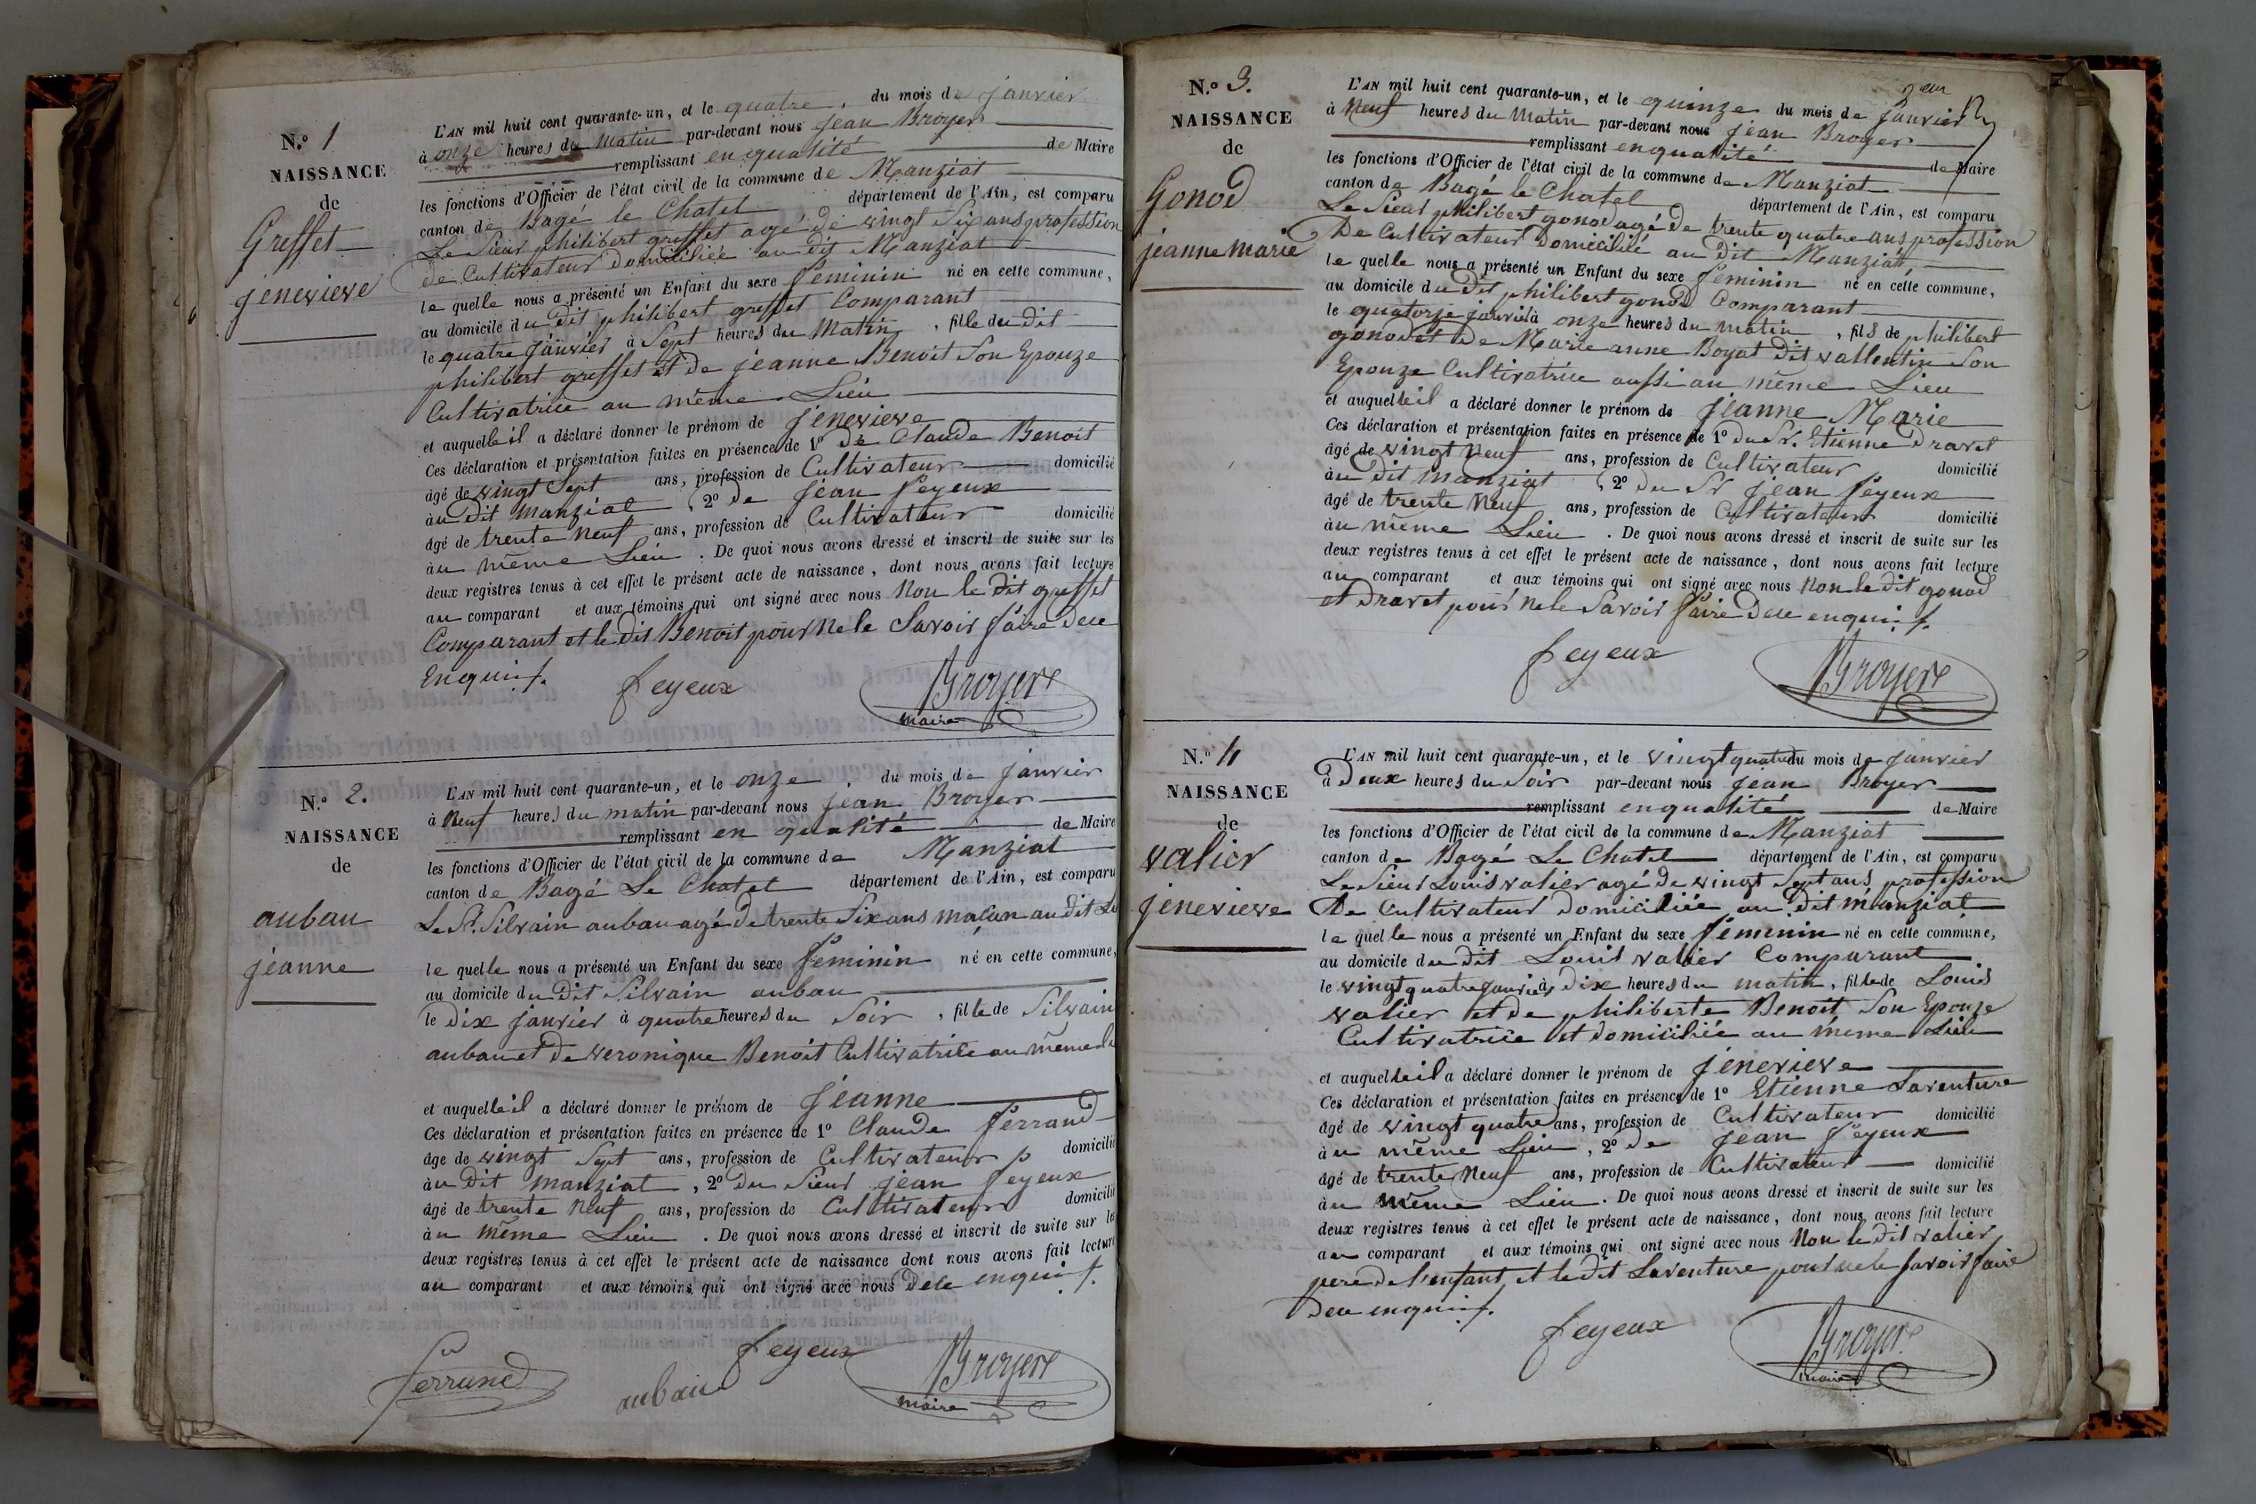 N.º 1
NAISSANCE
de
Greffet
jenevieve
L'AN mil huit cent quarante-un, et le quatre, du mois de janvier
à onze heures du Matin par-devant nous jean Broyer
remplissant en qualité de Maire
les fonctions d'Officier de l'état civil de la commune de Manziat
canton de Bagé le Chatel département de l'Ain, est comparu
Le Sieur philibert greffet agé de vingt Six ans profession
de Cultivateur domiciliée au dit Manziat
le quelle nous a présenté un Enfant du sexe feminin né en cette commune,
au domicile du dit philibert greffet Comparant
le quatre janvier à Sept heures du Matin, fille du dit
philibert greffet et de jeanne Benoit Son Epouze
Cultivatrice au même Lieu
et auquelle il a déclaré donner le prénom de jenevieve
Ces déclaration et présentation faites en présence de 1º de Claude Benoit
âgé de vingt Sept ans, profession de Cultivateur domicilié
àu dit manziat, 2º de jean feyeux
âgé de trente Neuf ans, profession de Cultivateur domicilié
àu même Lieu. De quoi nous avons dressé et inscrit de suite sur les
deux registres tenus à cet effet le présent acte de naissance, dont nous avons fait lecture
au comparant et aux témoins qui ont signé avec nous Non le dit greffet
Comparant et le dit Benoit pour ne le Savoir faire de ce
Enquis.
feyeux Broyer
maire
N.º 2.
NAISSANCE
de
aubau
jeanne
L'AN mil huit cent quarante-un, et le onze du mois de janvier
à Neuf heures du matin par-devant nous jean Broyer
remplissant en qualité de Maire
les fonctions d'Officier de l'état civil de la commune de Manziat
canton de Bagé Le Chatel département de l'Ain, est comparu
Le Sr. Silvain aubau agé de trente Six ans maçon au dit
le quelle nous a présenté un Enfant du sexe feminin né en cette commune,
au domicile du Dit Silvain aubau
le Dix janvier à quatre heures du Soir, fille de Silvain
aubau et de veronique Benoit Cultivatrice au même
et auquelle il a déclaré donner le prénom de jeanne
Ces déclaration et présentation faites en présence de 1º Claude ferrand
âgé de vingt Sept ans, profession de Cultivateur domicilié
àu dit manziat, 2º du Sieur jean feyeux
âgé de trente Neuf ans, profession de Cultivateur domicilié
àu même Lieu. De quoi nous avons dressé et inscrit de suite sur les
deux registres tenus à cet effet le présent acte de naissance dont nous avons fait lecture
au comparant et aux témoins qui ont signé avec nous de ce enquis.
ferrand aubau feyeux Broyer
maire
N.º 3.
NAISSANCE
de
Gonod
jeanne marie
L'AN mil huit cent quarante-un, et le quinze du mois de janvier
à Neuf heures du Matin par-devant nous jean Broyer
remplissant en qualité de Maire
les fonctions d'Officier de l'état civil de la commune de Manziat
canton de Bagé le Chatel département de l'Ain, est comparu
Le Sieur philibert gonod agé de trente quatre ans profession
De Cultivateur domiciliée au dit Manziat
le quelle nous a présenté un Enfant du sexe feminin né en cette commune,
au domicile du dit philibert gonod Comparant
le quatorze janvier à onze heures du matin, fils de philibert
gonod et de Marie anne Boyat dit vallentin Son
Epouze Cultivatrice aussi au même Lieu
et auquelle il a déclaré donner le prénom de jeanne Marie
Ces déclaration et présentation faites en présence de 1º du Sr. Etienne Dravet
âgé de vingt Neuf ans, profession de Cultivateur domicilié
àu dit manziat, 2º du Sr jean feyeux
âgé de trente Neuf ans, profession de Cultivateur domicilié
àu même Lieu. De quoi nous avons dressé et inscrit de suite sur les
deux registres tenus à cet effet le présent acte de naissance, dont nous avons fait lecture
au comparant et aux témoins qui ont signé avec nous Non le dit gonod
et Dravet pour Ne le Savoir faire de ce enquis.
feyeux Broyer
N.º 4
NAISSANCE
de
valier
jenevieve
L'AN mil huit cent quarante-un, et le vingt quatre du mois de janvier
à Deux heures du Soir par-devant nous jean Broyer
remplissant en qualité de Maire
les fonctions d'Officier de l'état civil de la commune de Manziat
canton de Bagé Le Chatel département de l'Ain, est comparu
Le Sieur Louis valier agé de vingt Sept ans profession
De Cultivateur domiciliée au dit manziat
le quelle nous a présenté un Enfant du sexe féminin né en cette commune,
au domicile du dit Louis valier Comparant
le vingt quatre janvier à Dix heures du matin, fille de Louis
valier et de philiberte Benoit Son Epouze
Cultivatrice et domiciliée au même Lieu
et auquelle il a déclaré donner le prénom de jenevieve
Ces déclaration et présentation faites en présence de 1º Etienne Laventure
âgé de vingt quatre ans, profession de Cultivateur domicilié
àu même Lieu, 2º de jean feyeux
âgé de trente Neuf ans, profession de Cultivateur domicilié
àu même Lieu. De quoi nous avons dressé et inscrit de suite sur les
deux registres tenus à cet effet le présent acte de naissance, dont nous avons fait lecture
au comparant et aux témoins qui ont signé avec nous Non le dit valier
pere de l'enfant et le dit Laventure pour ne le savoir faire
De ce enquis.
feyeux Broyer
maire